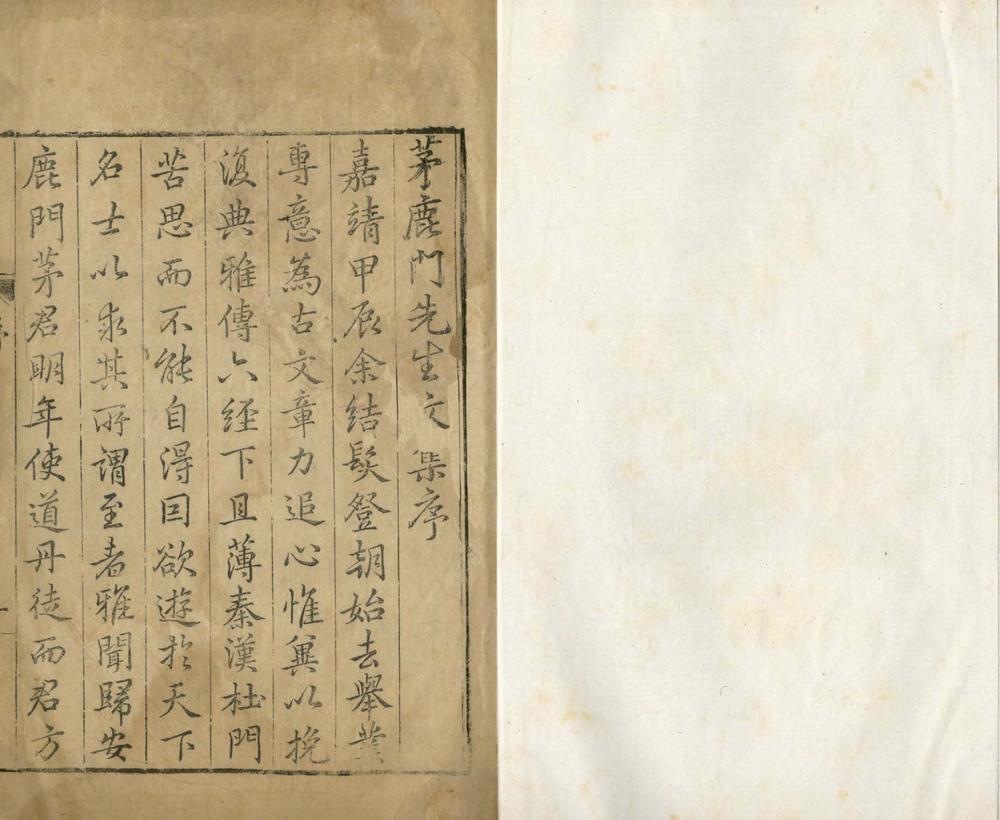 茅鹿門先生文集序
嘉靖甲辰余結髮登朝始去舉業
專意為古文章力追心惟兾以挽
復典雅傳六經下且薄秦漢杜門
苦思而不能自得因欲遊於天下
名士以求其所謂至者雅聞歸安
鹿門茅君明年使道丹徒而君方